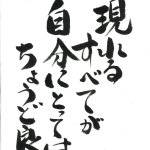 現れる
すべてが
自分にとっては
ちょうど良